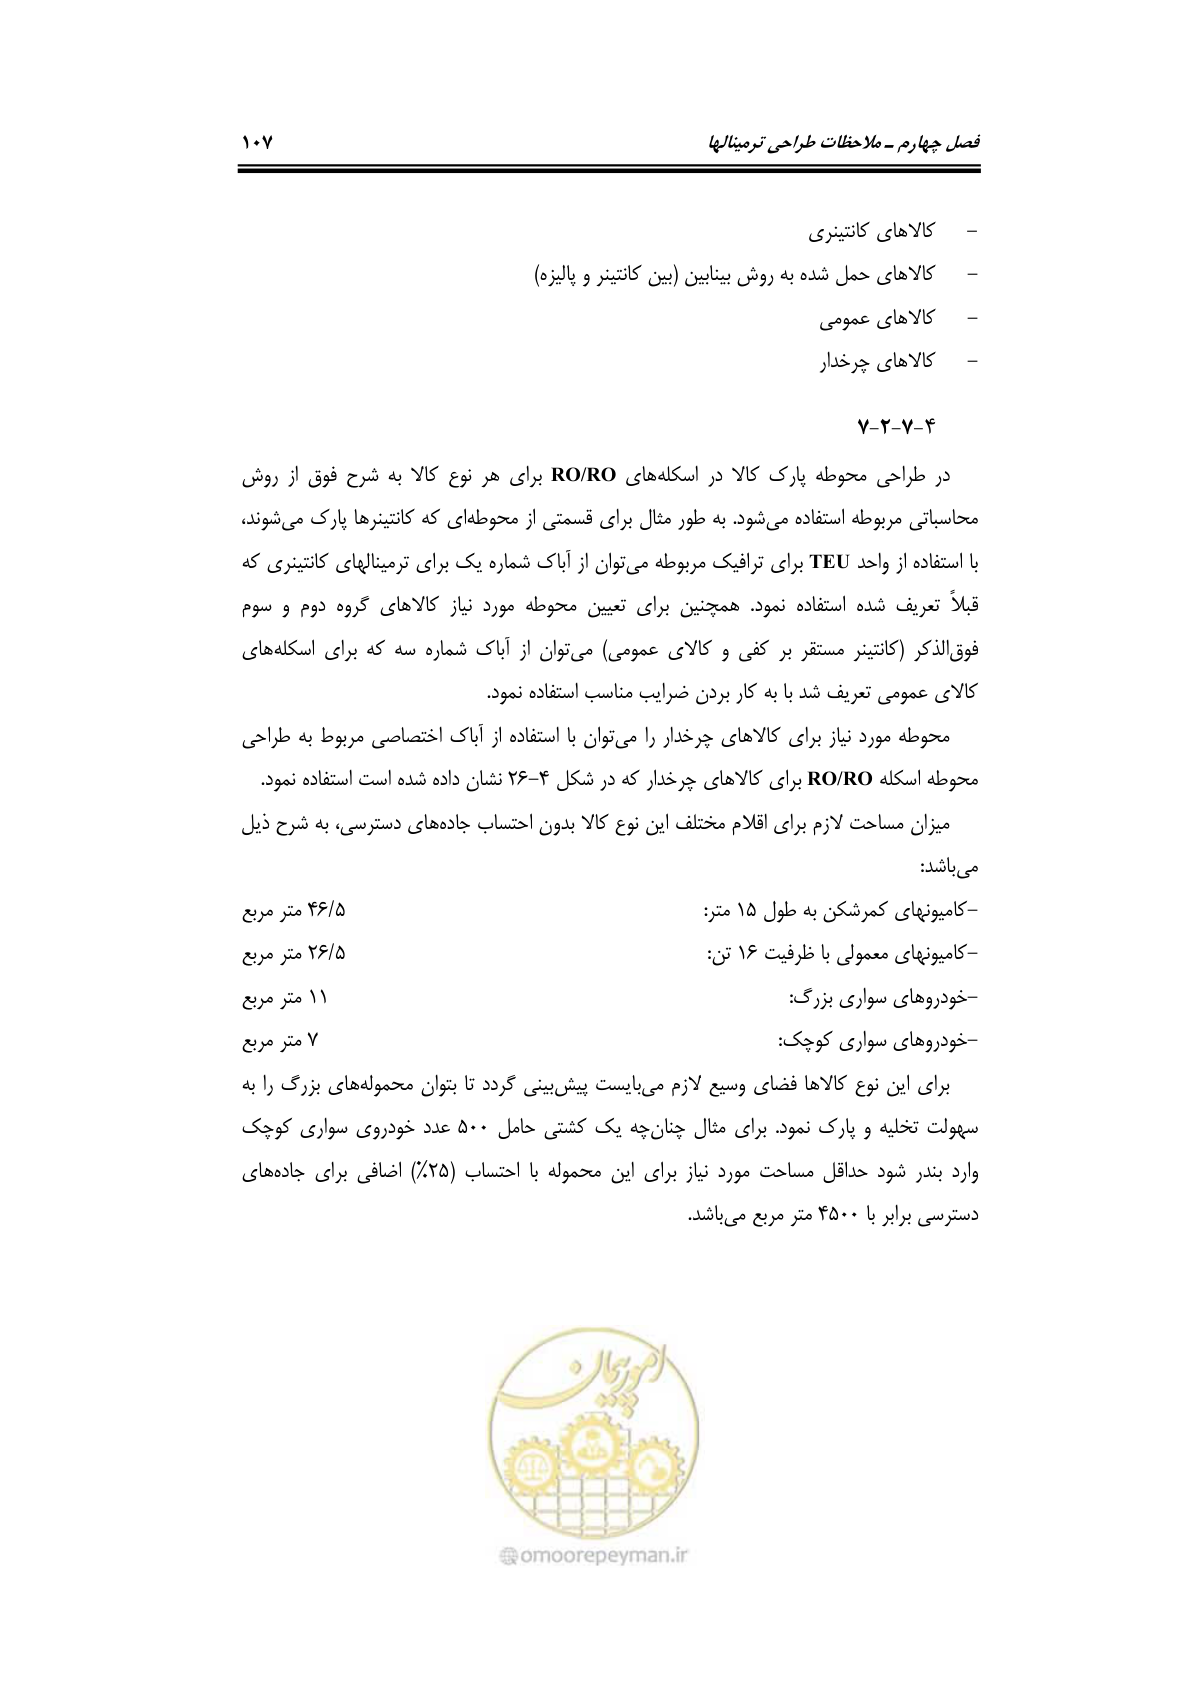 فصل چهارم ـ ملاحظات طراحی ترمینالها ۱۰۷
- کالاهای کانتینری
- کالاهای حمل شده به روش بینابین (بین کانتینر و پالیزه)
- کالاهای عمومی
- کالاهای چرخدار
۴-۷-۲-۷
در طراحی محوطه پارک کالا در اسکله‌های RO/RO برای هر نوع کالا به شرح فوق از روش
محاسباتی مربوطه استفاده می‌شود. به طور مثال برای قسمتی از محوطه‌ای که کانتینرها پارک می‌شوند،
با استفاده از واحد TEU برای ترافیک مربوطه می‌توان از آباک شماره یک برای ترمینالهای کانتینری که
قبلاً تعریف شده استفاده نمود. همچنین برای تعیین محوطه مورد نیاز کالاهای گروه دوم و سوم
فوق‌الذکر (کانتینر مستقر بر کفی و کالای عمومی) می‌توان از آباک شماره سه که برای اسکله‌های
کالای عمومی تعریف شد با به کار بردن ضرایب مناسب استفاده نمود.
محوطه مورد نیاز برای کالاهای چرخدار را می‌توان با استفاده از آباک اختصاصی مربوط به طراحی
محوطه اسکله RO/RO برای کالاهای چرخدار که در شکل ۴-۲۶ نشان داده شده است استفاده نمود.
میزان مساحت لازم برای اقلام مختلف این نوع کالا بدون احتساب جاده‌های دسترسی، به شرح ذیل
می‌باشد:
-کامیونهای کمرشکن به طول ۱۵ متر: ۴۶/۵ متر مربع
-کامیونهای معمولی با ظرفیت ۱۶ تن: ۲۶/۵ متر مربع
-خودروهای سواری بزرگ: ۱۱ متر مربع
-خودروهای سواری کوچک: ۷ متر مربع
برای این نوع کالاها فضای وسیع لازم می‌بایست پیش‌بینی گردد تا بتوان محموله‌های بزرگ را به
سهولت تخلیه و پارک نمود. برای مثال چنان‌چه یک کشتی حامل ۵۰۰ عدد خودروی سواری کوچک
وارد بندر شود حداقل مساحت مورد نیاز برای این محموله با احتساب (۲۵٪) اضافی برای جاده‌های
دسترسی برابر با ۴۵۰۰ متر مربع می‌باشد.
امور پیمان
@omoorepeyman.ir